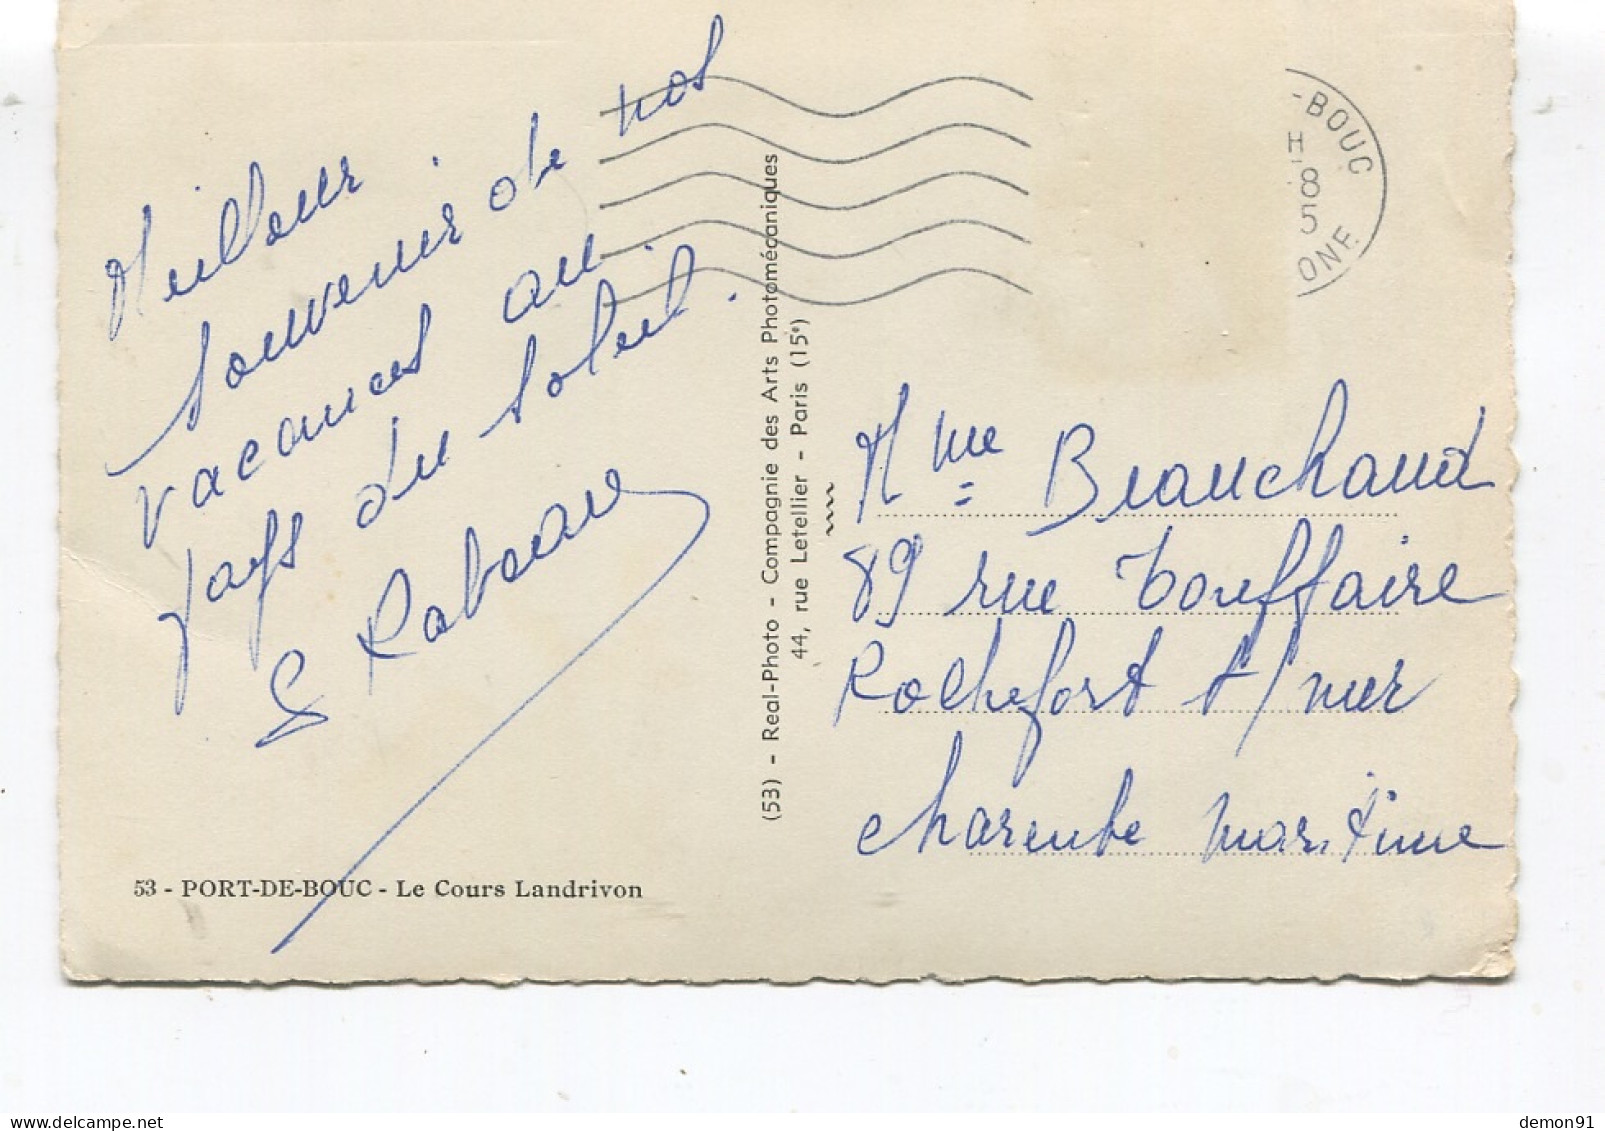 Meilleur
souvenir de nos
vacances au
pays du soleil.
G Rabeau
53 - PORT-DE-BOUC - Le Cours Landrivon
(53) - Real-Photo - Compagnie des Arts Photomécaniques
44, rue Letellier - Paris (15e)
-BOUC
H
8
5
ONE
Mme Beauchaud
89 rue Touffaire
Rochefort s/ mer
charente maritime
demon91